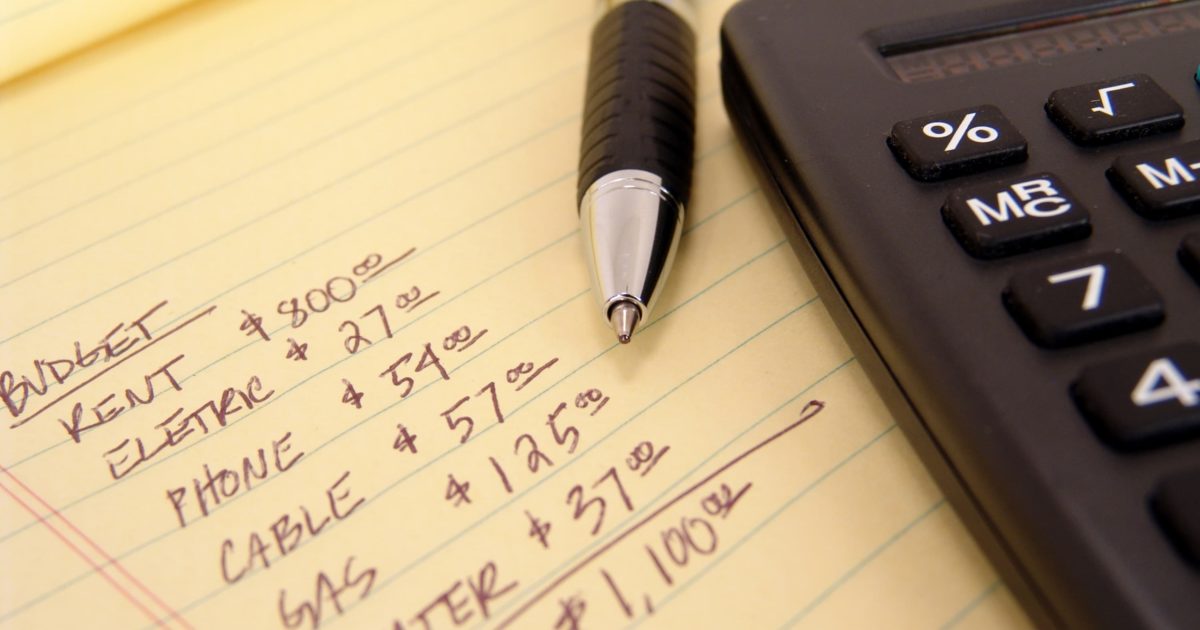 BUDGET
RENT $800.00
ELETRIC $27.00
PHONE $54.00
CABLE $57.00
GAS $125.00
ATER $37.00
$1,100.00
%
√
MRC
M-
7
4